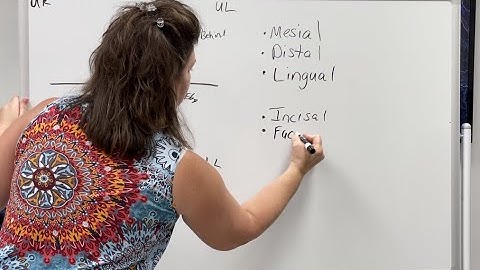 UR
UL
Behind
• Mesial
• Distal
• Lingual
• Incisal
• Fac
LL